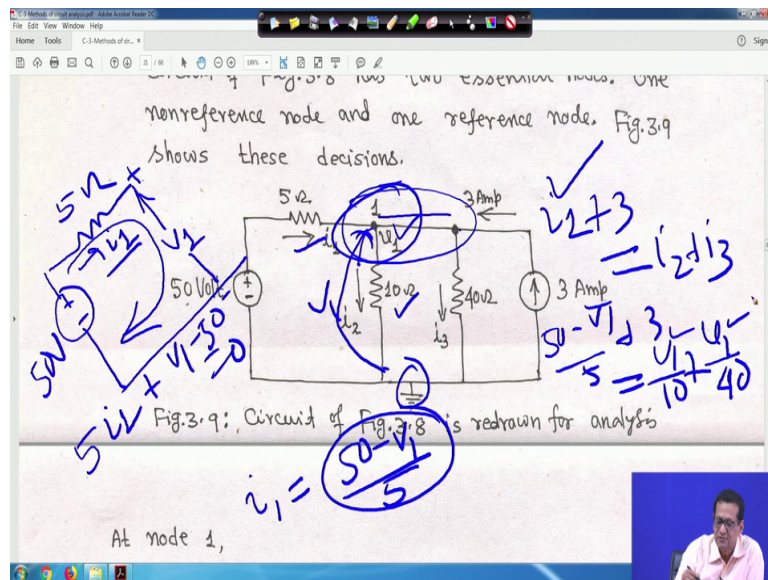 C-3-Methods of circuit analysis.pdf - Adobe Acrobat Reader DC
File Edit View Window Help
Home Tools C-3-Methods of cir... × Sign
21 / 66 199%
Circuit of Fig.3.8 has two essential nodes. One
nonreference node and one reference node. Fig.3.9
shows these decisions.
5Ω 1 3 Amp
i1 v1
50 Volt + - 10Ω 40Ω 3 Amp
i2 i3
Fig.3.9: Circuit of Fig.3.8 is redrawn for analysis
At node 1,
5Ω + V1
i1
50V + -
5i1 + V1-50
=0
V1
i1+3
=i2+i3
50-V1/5 + 3
= V1/10 + V1/40
i1 = 50-V1/5